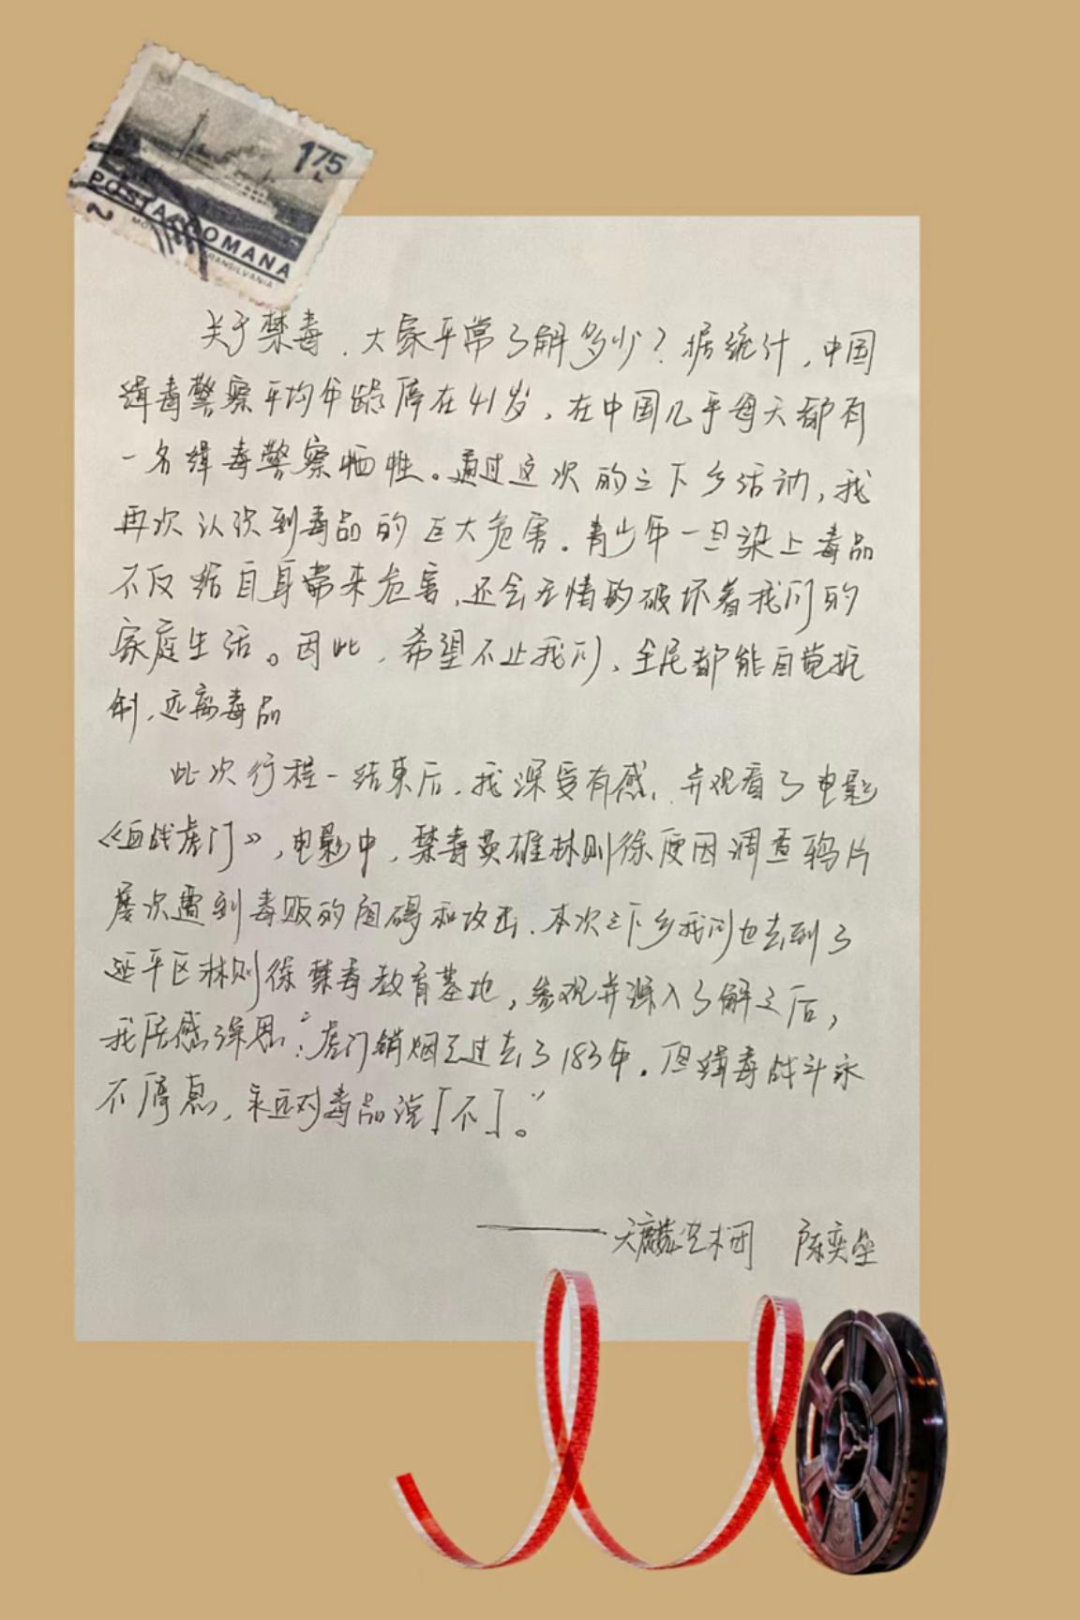 1.75
L
POSTA ROMANA
TRANSILVANIA
关于禁毒，大家平常了解多少？据统计，中国
缉毒警察平均年龄停在41岁，在中国几乎每天都有
一名缉毒警察牺牲。通过这次的三下乡活动，我
再次认识到毒品的巨大危害。青少年一旦染上毒品
不仅给自身带来危害，还会无情的破坏着我们的
家庭生活。因此，希望不止我们，全民都能自觉抵
制，远离毒品
此次行程一结束后，我深受有感，并观看了电影
《血战虎门》，电影中，禁毒英雄林则徐便因调查鸦片
屡次遭到毒贩的阻碍和攻击。本次三下乡我们也去到了
延平区林则徐禁毒教育基地，参观并深入了解之后，
我居感深思：“虎门销烟已过去了183年，但缉毒战斗永
不停息，永远对毒品说「不」。”
——天麟艺术团 陈奕